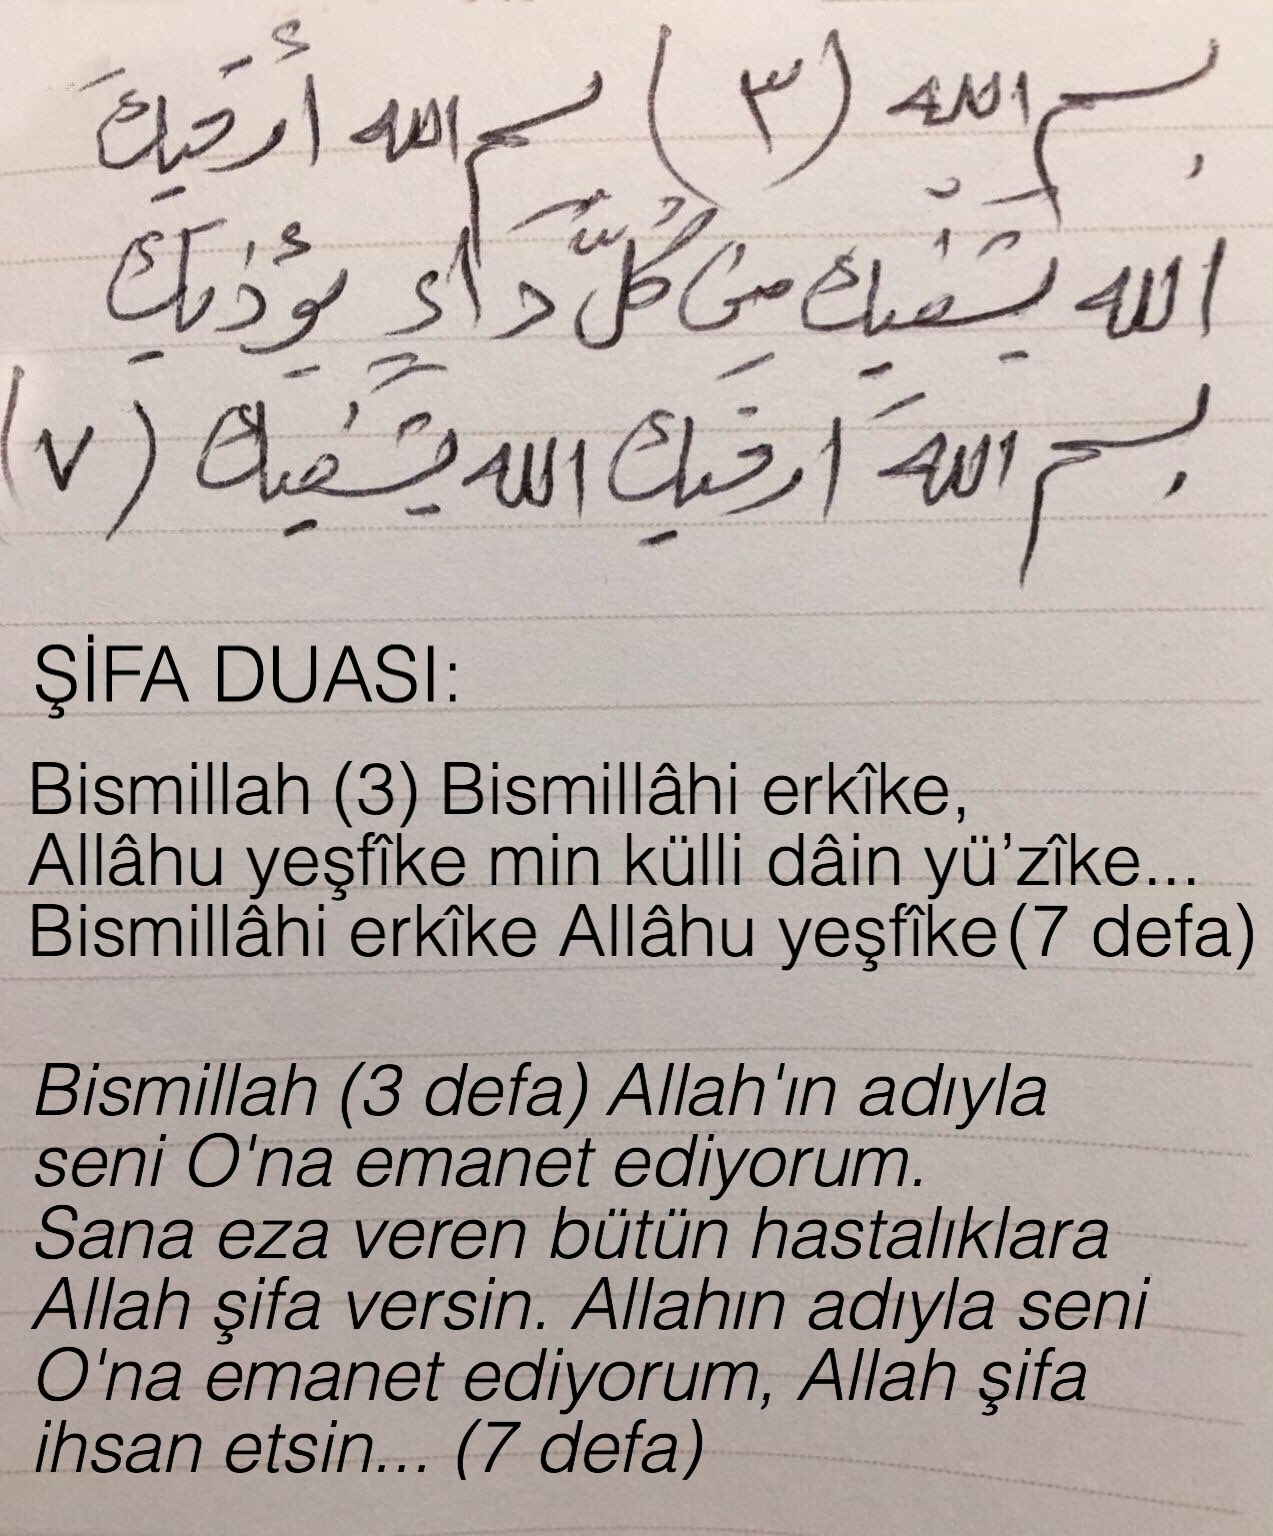 بسم الله (٣) بسم الله أرقيكَ
الله يشفيك من كُلِّ دَاءٍ يؤذيك
بسم الله ارقيك الله يشفيك (٧)
ŞİFA DUASI:
Bismillah (3) Bismillâhi erkîke,
Allâhu yeşfîke min külli dâin yü’zîke...
Bismillâhi erkîke Allâhu yeşfîke (7 defa)
Bismillah (3 defa) Allah'ın adıyla
seni O'na emanet ediyorum.
Sana eza veren bütün hastalıklara
Allah şifa versin. Allahın adıyla seni
O'na emanet ediyorum, Allah şifa
ihsan etsin... (7 defa)